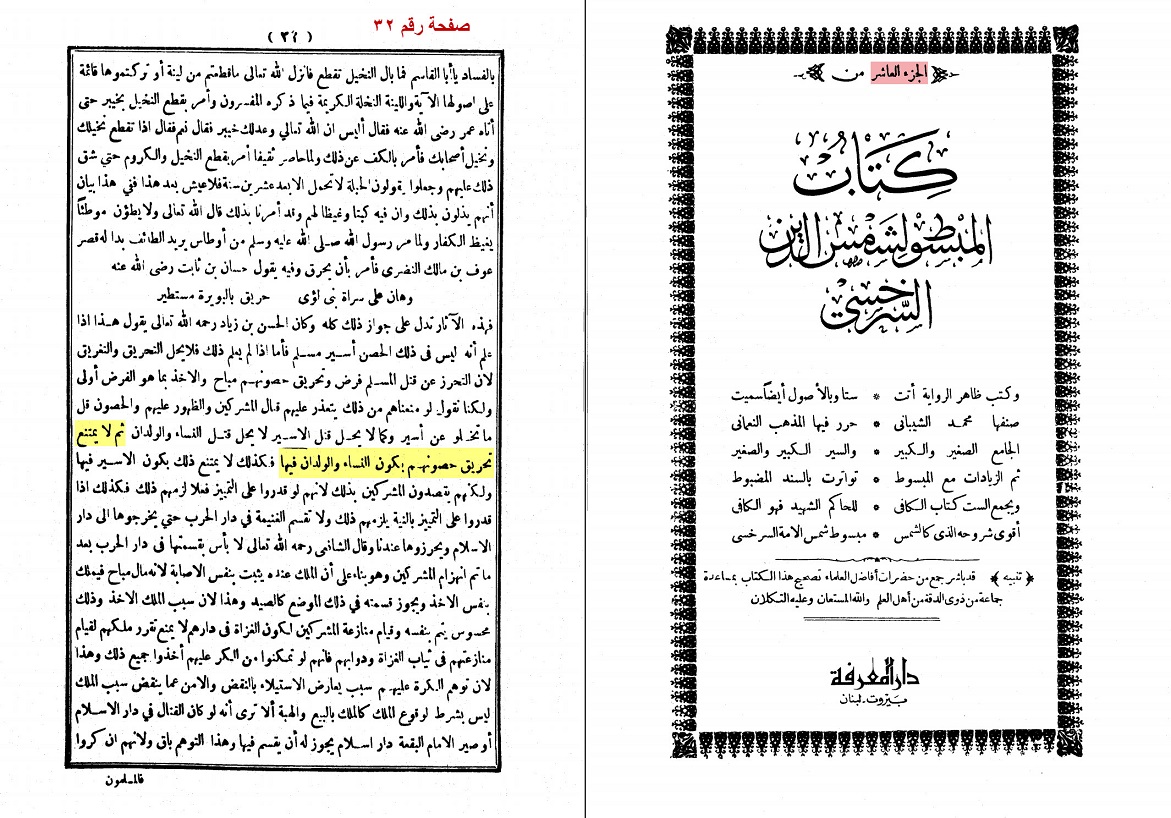 صفحة رقم ٣٢
( ٣٢ )
بالفساد يا أبا القاسم فما بال النخيل تقطع فانزل الله تعالى ماقطعتم من لينة أو تركتموها قائمة
على اصولها الآية واللينة النخلة الكريمة فيما ذكره المفسرون وأمر بقطع النخيل بخيبر حتى
أتاه عمر رضى الله عنه فقال أليس ان الله تعالي وعدلك خيبر فقال نعم فقال اذا تقطع نخيلك
ونخيل أصحابك فأمر بالكف عن ذلك ولما حاصر ثقيفا أمر بقطع النخيل والكروم حتي شق
ذلك عليهم وجعلوا يقولون الحبلة لا تحمل الا بعد عشرين سنة فلا عيش بعد هذا ففي هذا بيان
أنهم يذلون بذلك وان فيه كبتا وغيظا لهم وقد أمرنا بذلك قال الله تعالى ولا يطؤن موطئا
يغيظ الكفار ولما مر رسول الله صلى الله عليه وسلم من أوطاس يريد الطائف بدا له قصر
عوف بن مالك النضرى فأمر بأن يحرق وفيه يقول حسان بن ثابت رضى الله عنه
وهان على سراة بنى لؤى حريق بالبويرة مستطير
فهذه الآثار تدل على جواز ذلك كله وكان الحسن بن زياد رحمه الله تعالى يقول هذا اذا
علم أنه ليس فى ذلك الحصن أسير مسلم فأما اذا لم يعلم ذلك فلا يحل التحريق والتغريق
لان التحرز عن قتل المسلم فرض وتحريق حصونهم مباح والاخذ بما هو الفرض أولى
ولكنا نقول لو منعناهم من ذلك يتعذر عليهم قتال المشركين والظهور عليهم والحصون قل
ما تخلو عن أسير وكما لا يحل قتل الاسير لا يحل قتل النساء والولدان ثم لا يمتنع
تحريق حصونهم بكون النساء والولدان فيها فكذلك لا يمتنع ذلك بكون الاسير فيها
ولكنهم يقصدون المشركين بذلك لانهم لو قدروا على التمييز فعلا لزمهم ذلك فكذلك اذا
قدروا على التمييز بالنية يلزمهم ذلك ولا تقسم الغنيمة في دار الحرب حتي يخرجوها الى دار
الاسلام ويحرزوها عندنا وقال الشافعى رحمه الله تعالى لا بأس بقسمتها فى دار الحرب بعد
ما تم انهزام المشركين وهو بناء على أن الملك عنده يثبت بنفس الاصابة لانه مال مباح فيملك
بنفس الاخذ ويجوز قسمته في ذلك الموضع كالصيد وهذا لان سبب الملك الاخذ وذلك
محسوس يتم بنفسه وقيام منازعة المشركين لكون الغزاة فى دارهم لا يمنع تقرر ملكهم لقيام
منازعتهم فى ثياب الغزاة ودوابهم فانهم لو تمكنوا من الكر عليهم أخذوا جميع ذلك وهذا
لان توهم الكرة عليهم سبب يعارض الاستيلاء بالنقض والامن عما ينقض سبب الملك
ليس بشرط لوقوع الملك كالملك بالبيع والهبة ألا ترى أنه لو كان القتال في دار الاسلام
أو صير الامام البقعة دار اسلام يجوز له أن يقسم فيها وهذا التوهم باق ولانهم ان كروا
فالمسلمون
الجزء العاشر من
كتاب
المبسوط لشمس الدين
السرخسى
وكتب ظاهر الرواية أتت * ستا وبالأصول أيضا سميت
صنفها محمد الشيبانى * حرر فيها المذهب النعمانى
الجامع الصغير والكبير * والسير الكبير والصغير
ثم الزيادات مع المبسوط * تواترت بالسند المضبوط
ويجمع الست كتاب الكافى * للحاكم الشهيد فهو الكافى
أقوى شروحه الذى كالشمس * مبسوط شمس الامة السرخسى
﴿ تنبيه ﴾ قد باشر جمع من حضرات أفاضل العلماء تصحيح هذا الكتاب بمساعدة
جماعة من ذوى الدقة من أهل العلم والله المستعان وعليه التكلان
دار المعرفة
بيروت - لبنان